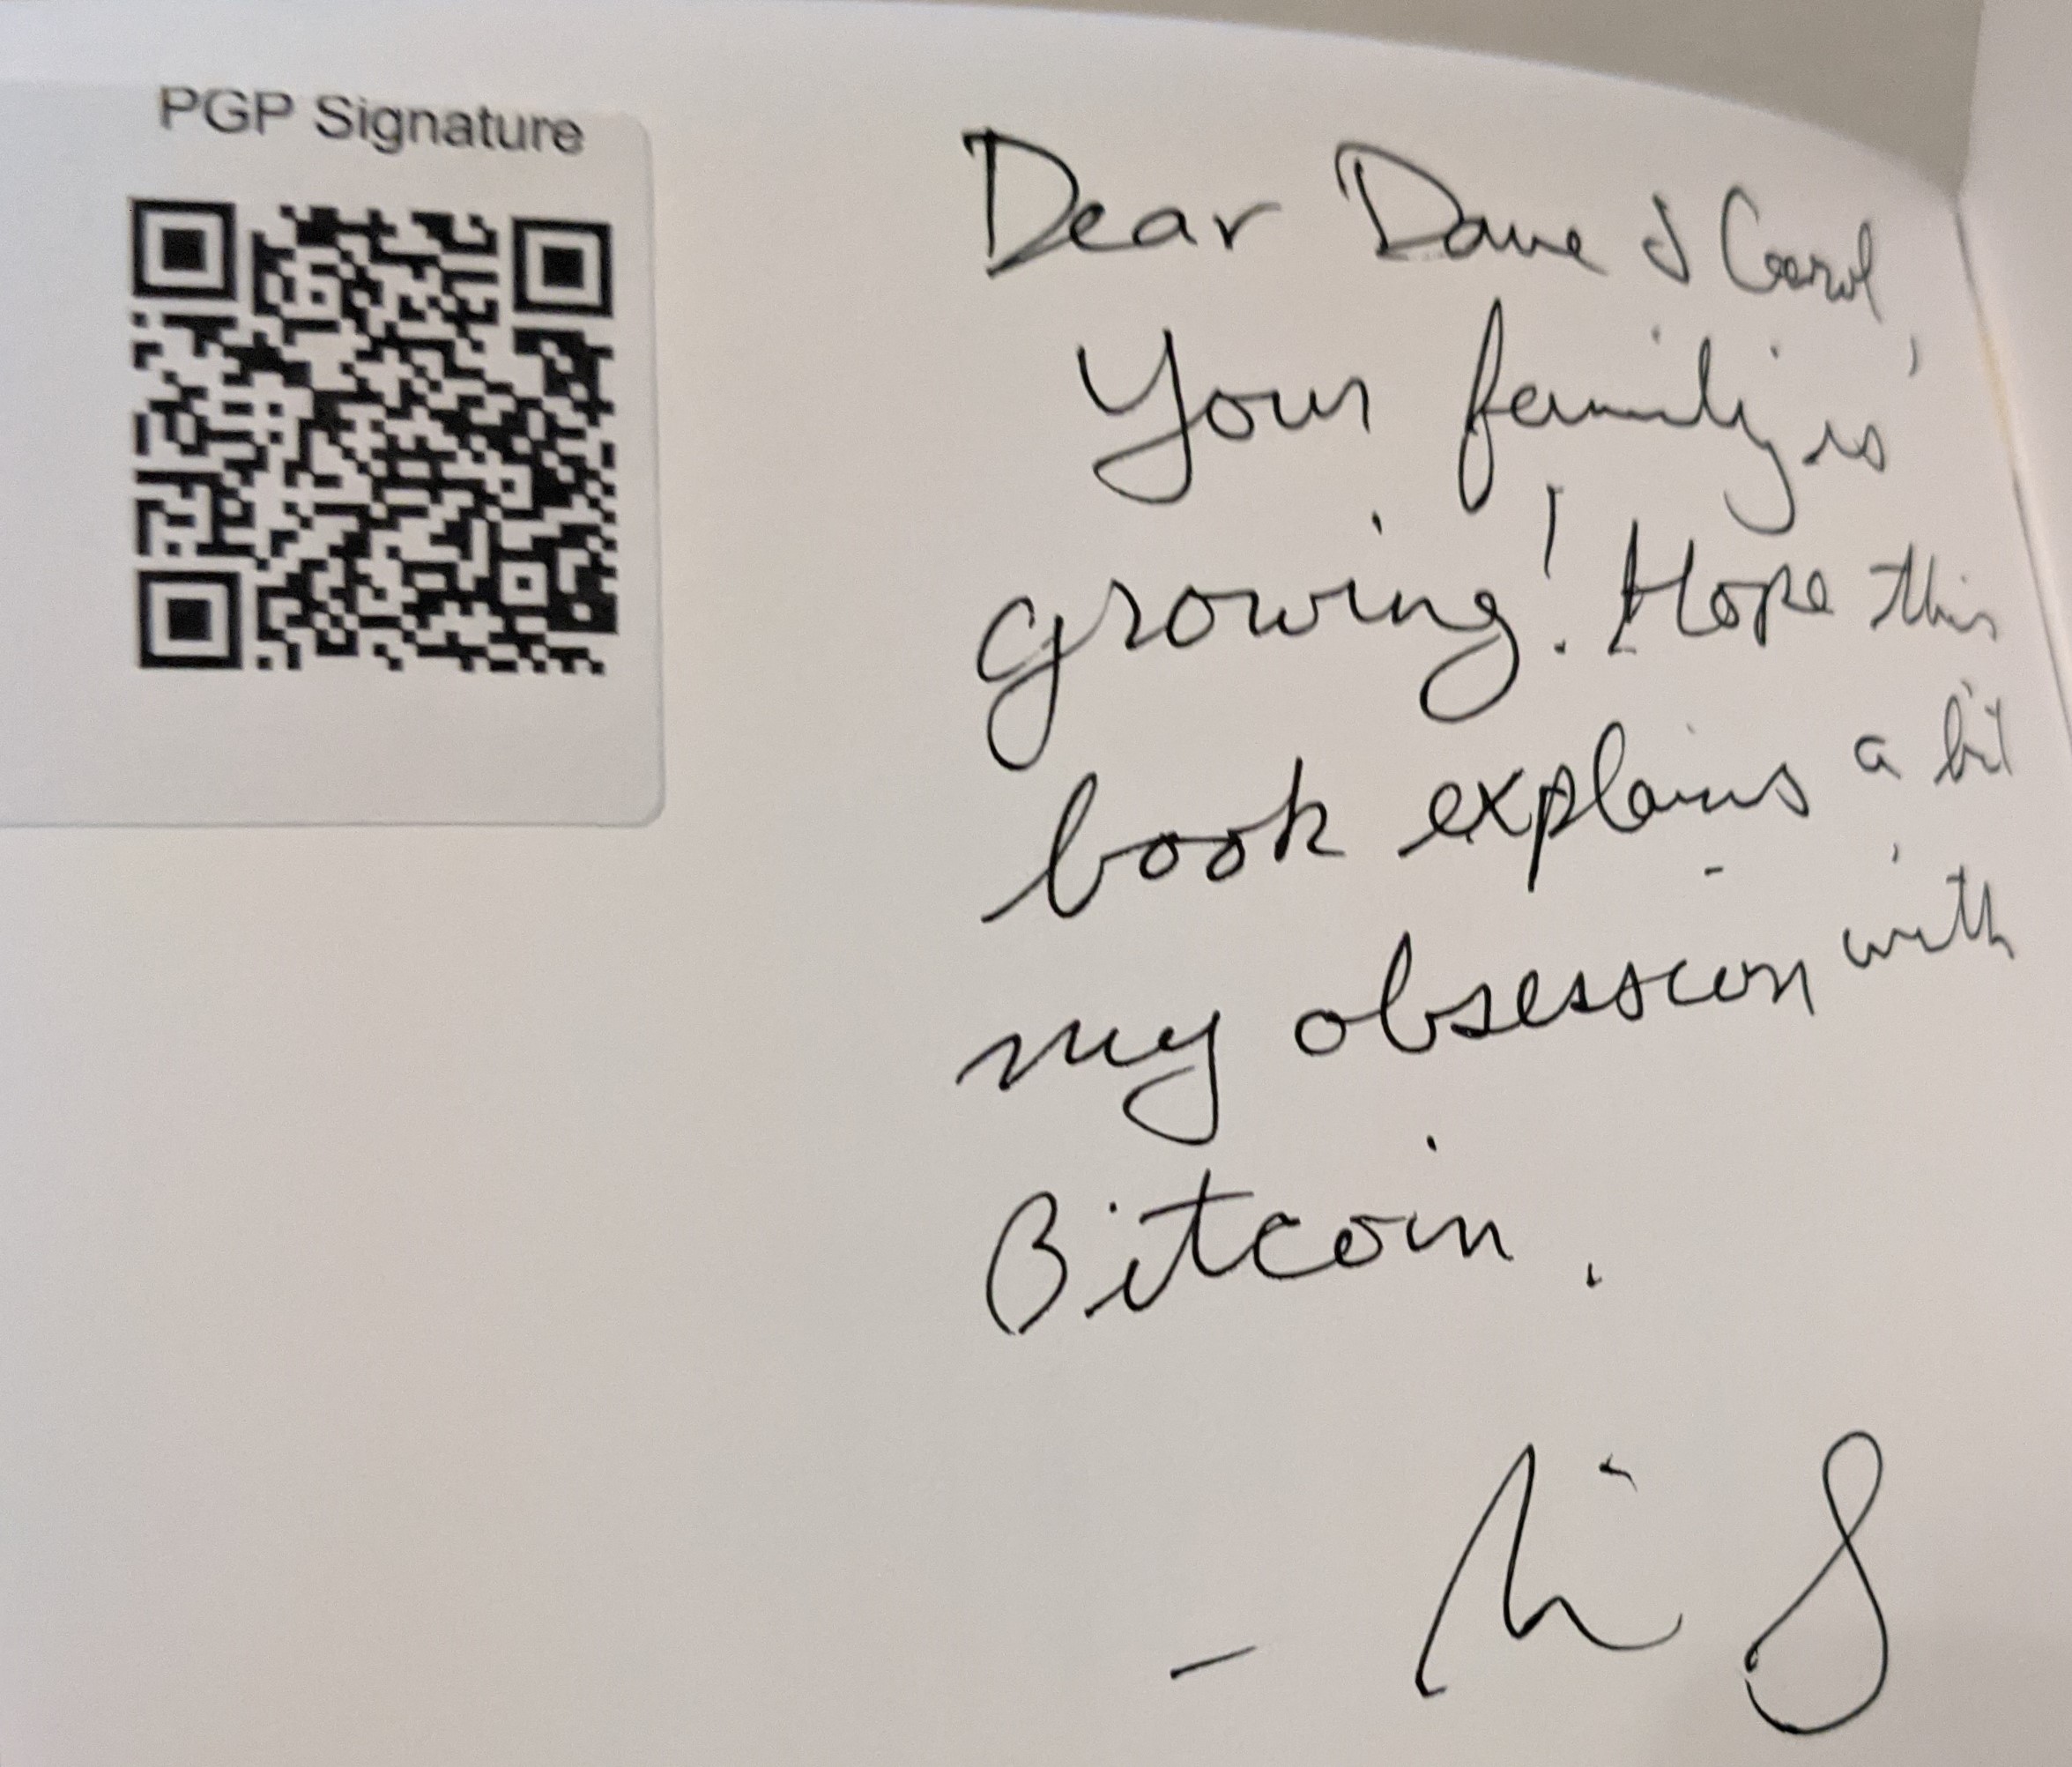 PGP Signature
Dear Dave & Carol,
Your family is
growing! Hope this
book explains a bit
my obsession with
Bitcoin.
-